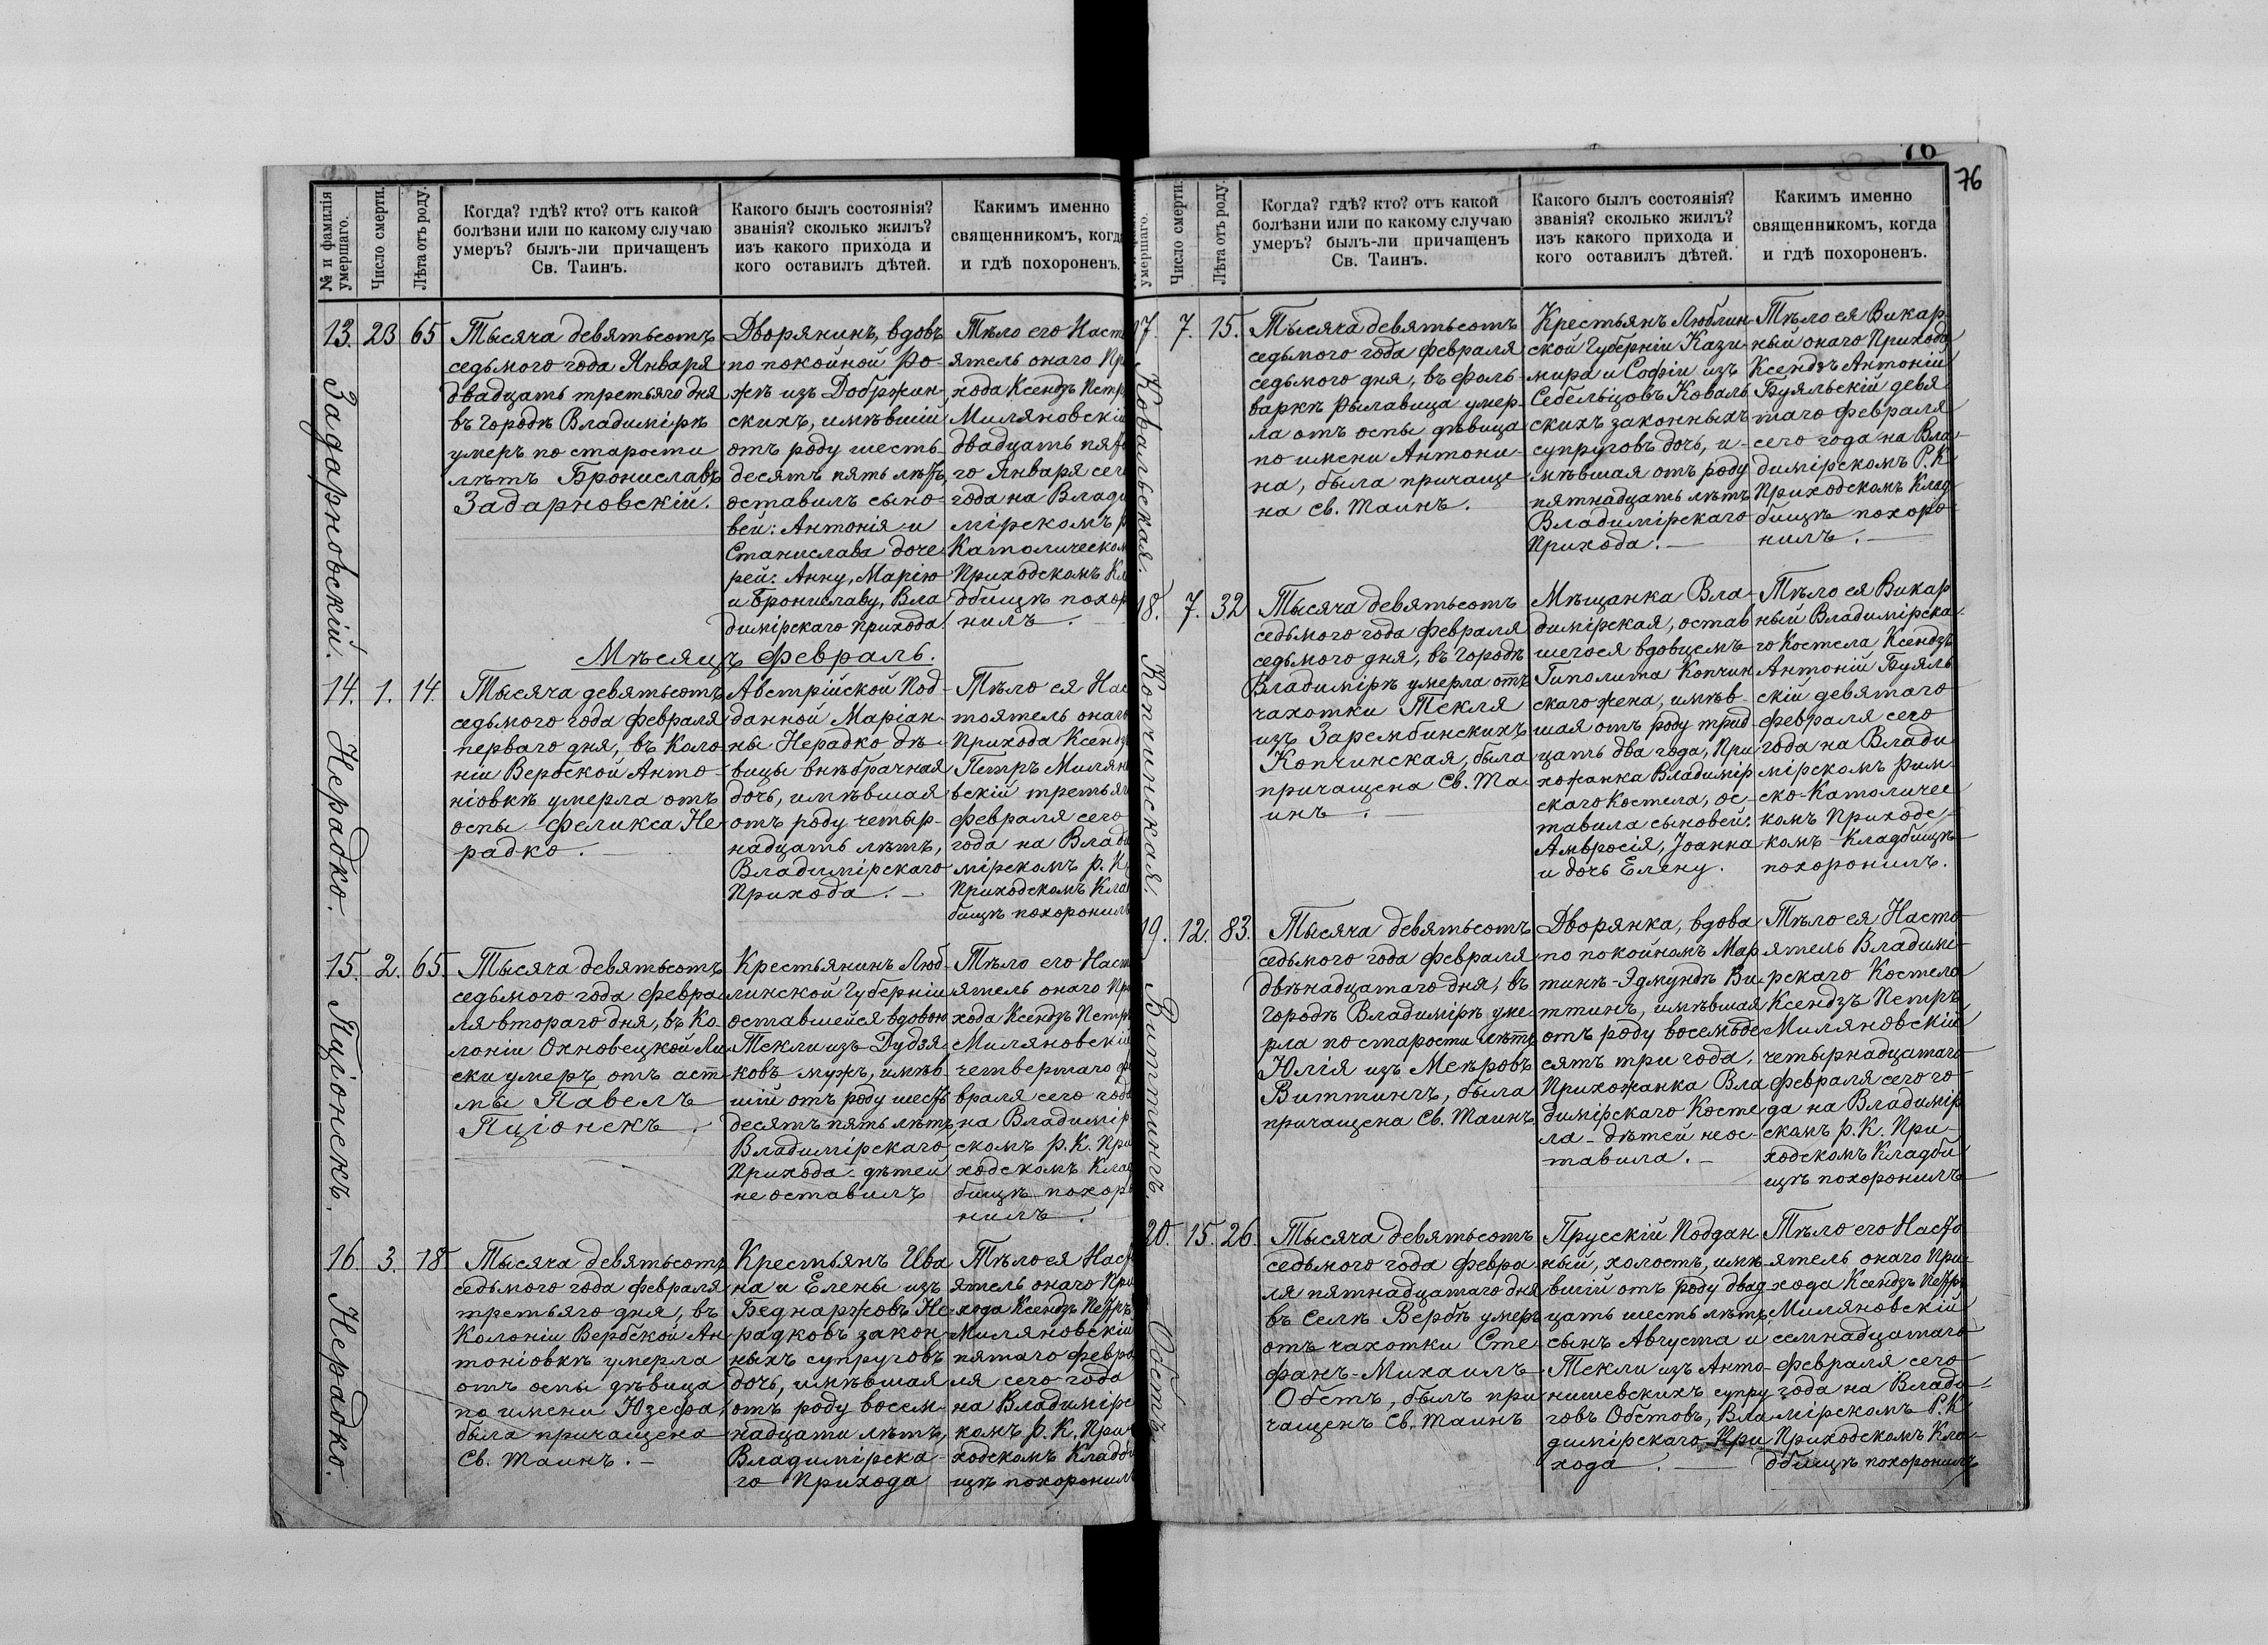 76
76
№ и фамилія умершаго.
Число смерти.
Лѣта отъ роду.
Когда? гдѣ? кто? отъ какой
болѣзни или по какому случаю
умеръ? былъ-ли причащенъ
Св. Таинъ.
Какого былъ состоянія?
званія? сколько жилъ?
изъ какого прихода и
кого оставилъ дѣтей.
Каким именно
священникомъ, когд
и гдѣ похороненъ.
13.
Задарновскій.
23
65
Тысяча девятьсотъ
седьмого года Января
двадцать третьяго дня
въ городѣ Владимірѣ
умеръ по старости
лѣтъ Брониславъ
Задарновскій.
Дворянинъ, вдовъ
по покойной Ро-
жѣ изъ Добржин-
скихъ, имѣвшій
отъ роду шесть-
десятъ пять лѣтъ,
оставилъ сыно-
вей: Антонія и
Станислава доче-
рей: Анну, Марію
и Брониславу, Вла
димірскаго прихода.
Тѣло его Наст
ятель онаго Пр
хода Ксендзъ Петръ
Миляновскій
двадцать пято
го Января сего
года на Влади
мірскомъ Р
Католическом
Приходскомъ Кл
дбищѣ похор
нилъ.
Мѣсяцъ Февраль.
14.
Нерадко.
1.
14.
Тысяча девятьсотъ
седьмого года февраля
перваго дня, въ Коло-
ніи Вербской Анто-
ніовкѣ умерла отъ
оспы Феликса Не-
радко.
Австрійской Под-
данной Маріан-
ны Нерадко дѣ-
вицы внѣбрачная
дочь, имѣвшая
отъ роду четыр-
надцать лѣтъ,
Владимірскаго
Прихода.
Тѣло ея Нас
тоятель онаго
Прихода Ксендзъ
Петръ Милян
вскій третьяг
февраля сего
года на Влади
мірскомъ Р. К
Приходскомъ Клад
бищѣ похоронилъ
15.
Пціонекъ.
2.
65.
Тысяча девятьсотъ
седьмого года февра
ля второго дня, въ Ко
лоніи Охновецкой Ли
ски умеръ отъ аст-
мы Павелъ
Пціонекъ.
Крестьянинъ Люб-
линской Губерніи
оставшейся вдовою
Текли изъ Дудзя-
ковъ мужъ, имѣв-
шій отъ роду шесть
десятъ пять лѣтъ,
Владимірскаго
Прихода - дѣтей
не оставилъ
Тѣло его Наст
ятель онаго Пр
хода Ксендзъ Петръ
Миляновскій
четвертаго фе
враля сего года
на Владимір
скомъ Р. К. При
ходскомъ Клад
бищѣ похоро
нилъ.
16.
Нерадко.
3.
18.
Тысяча девятьсотъ
седьмого года февраля
третьяго дня, въ
Колоніи Вербской Ан
тоніовкѣ умерла
отъ оспы дѣвица
по имени Юзефа,
была причащена
Св. Таинъ.
Крестьянъ Ива
на и Елены изъ
Беднаржовъ Не-
радковъ закон-
ныхъ супруговъ
дочь, имѣвшая
отъ роду восем-
надцати лѣтъ,
Владимірска-
го Прихода
Тѣло ея Наст
ятель онаго При
хода Ксендзъ Петръ
Миляновскій
пятаго февра
ля сего года
на Владимірс
комъ Р. К. При
ходскомъ Кладб
ищѣ похоронилъ
умершаго.
Число смерти.
Лѣта отъ роду.
Когда? гдѣ? кто? отъ какой
болѣзни или по какому случаю
умеръ? былъ-ли причащенъ
Св. Таинъ.
Какого былъ состоянія?
званія? сколько жилъ?
изъ какого прихода и
кого оставилъ дѣтей.
Какимъ именно
священникомъ, когда
и гдѣ похороненъ.
17.
Ковальская.
7.
15.
Тысяча девятьсотъ
седьмого года февраля
седьмого дня, въ фоль-
варкѣ Рылавица умер-
ла отъ оспы дѣвица
по имени Антони-
на, была причаще
на Св. Таинъ.
Крестьянъ Люблин-
ской Губерніи Кази-
мира и Софіи изъ
Себельцовъ Коваль
скихъ законныхъ
супруговъ дочь, и-
мѣвшая отъ роду
пятнадцать лѣтъ
Владимірскаго
Прихода.
Тѣло ея Викар
ный онаго Прихода
Ксендзъ Антоній
Буяльскій девя
таго февраля
сего года на Вла-
димірскомъ Р. К.
Приходскомъ Клад
бищѣ похоро
нилъ.
18.
Копчинская.
7.
32
Тысяча девятьсотъ
седьмого года февраля
седьмого дня, въ городѣ
Владимірѣ умерла отъ
чахотки Текля
изъ Зарембинскихъ
Копчинская, была
причащена Св. Та-
инъ.
Мѣщанка Вла-
димірская, остав
шегося вдовцемъ
Гиполита Копчин
скаго жена, имѣв-
шая отъ роду трид
цать два года, При
хожанка Владимір
скаго Костела, ос-
тавила сыновей:
Амвросія, Іоанна
и дочь Елену.
Тѣло ея Викар
ный Владимірска
го Костела Ксендзъ
Антоній Буяль
скій девятаго
февраля сего
года на Влади
мірскомъ Рим-
ско-Католичес
комъ Приходс-
комъ Кладбищѣ
похоронилъ.
19.
Виттингъ.
12.
83.
Тысяча девятьсотъ
седьмого года февраля
двѣнадцатаго дня, въ
городѣ Владимірѣ уме-
рла по старости лѣтъ
Юлія изъ Мееровъ
Виттингъ, была
причащена Св. Таинъ
Дворянка, вдова
по покойномъ Мар
тинѣ-Эдмундѣ Ви-
ттингъ, имѣвшая
отъ роду восемьде
сятъ три года.
Прихожанка Вла
димірскаго Косте
ла - дѣтей неос-
тавила.
Тѣло ея Насто-
ятель Владимі-
рскаго Костела
Ксендзъ Петръ
Миляновскій
четырнадцатаго
февраля сего го-
да на Владимір
скомъ Р. К. При-
ходскомъ Кладби
щѣ похоронилъ
20.
Обстъ.
15.
26.
Тысяча девятьсотъ
седьмого года февра
ля пятнадцатаго дня
въ селѣ Вербѣ умеръ
отъ чахотки Сте
фанъ-Михаилъ
Обстъ, былъ при
чащенъ Св. Таинъ
Прусскій Поддан
ный, холостъ, имѣ-
вшій отъ роду двад
цать шесть лѣтъ,
сынъ Августа и
Текли изъ Анто-
нишевскихъ супру
говъ Обстовъ, Вла
димірскаго При
хода.
Тѣло его Насто
ятель онаго При-
хода Ксендзъ Петръ
Миляновскій
семнадцатаго
февраля сего
года на Влади-
мірскомъ Р. К.
Приходскомъ Кла-
дбищѣ похоронилъ